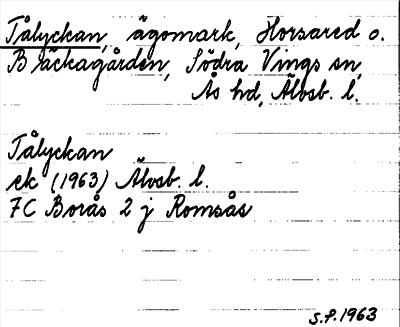 Tålyckan, ägomark, Horsared o.
Bäckagården, Södra Vings sn,
Ås hd, Älvsb. l.
Tålyckan
ek (1963) Älvsb. l.
7C Borås 2 j Romsås
S.P. 1963